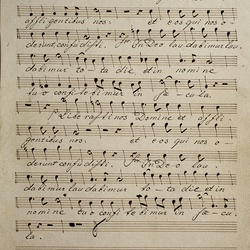 affligentibus nos: et eos qui nos o-
derunt confudisti. In Deo laudabimur lau-
dabimur tota die, et in nomine
tuo confitebimur in sæcula.
Liberasti nos Domine et affli
gentibus nos: et eos qui nos o-
derunt confudisti. In Deo lau
dabimur laudabimur to-ta die, et in
nomine tuo confitebimur in sæ-cu-
la.